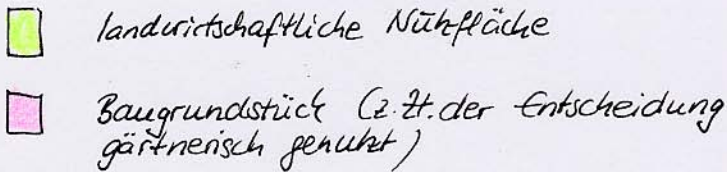 landwirtschaftliche Nutzfläche
Baugrundstück (z.Zt. der Entscheidung
gärtnerisch genutzt)